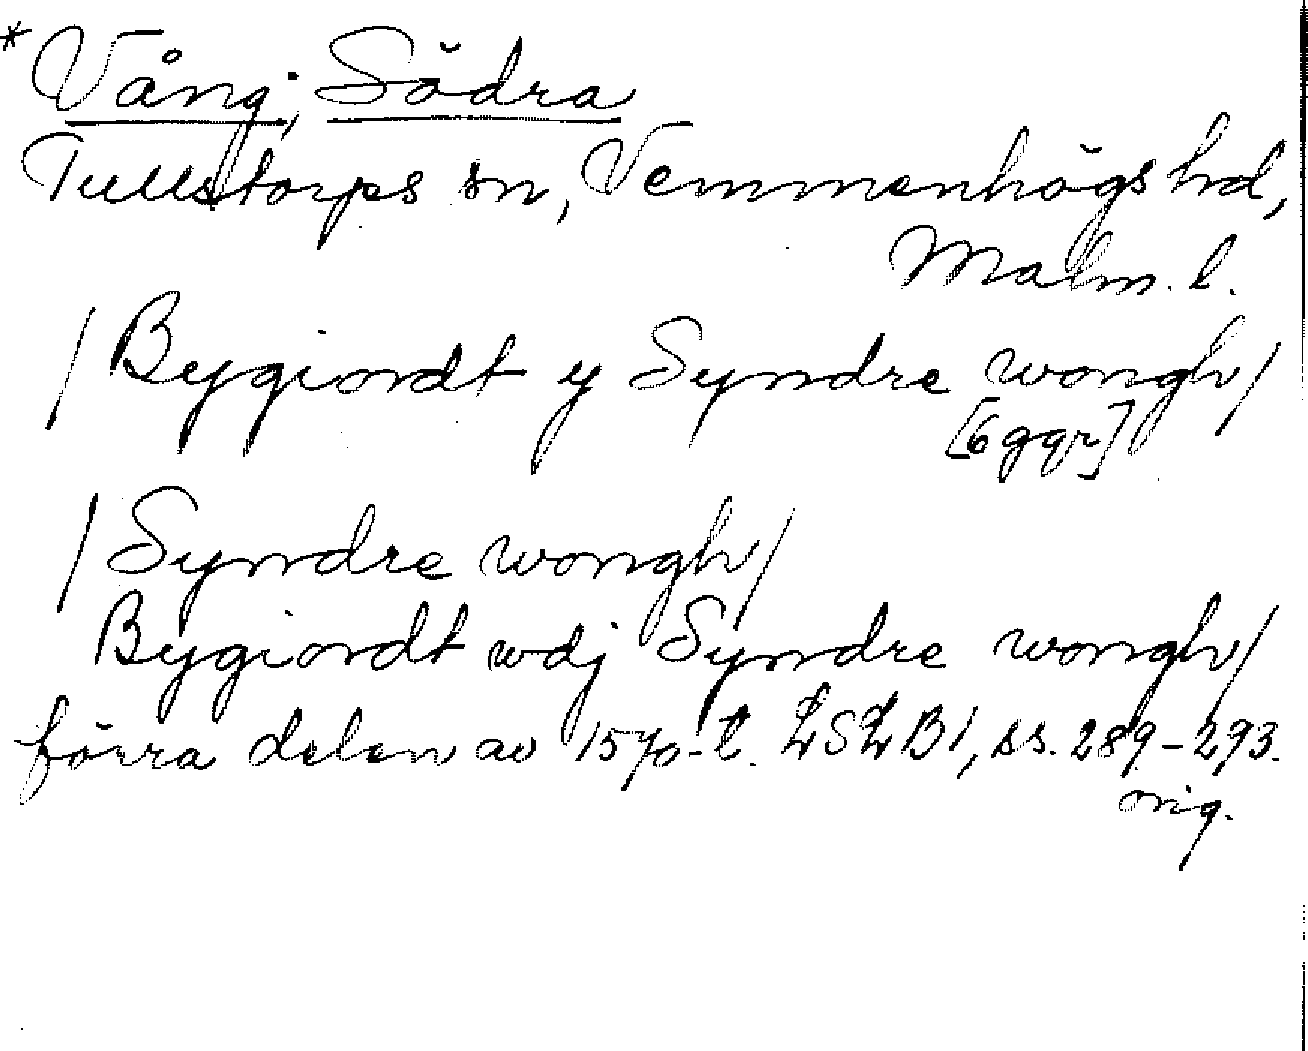 *Vång, Södra
Tullstorps sn, Vemmenhögs hd,
Malm. l.
/Bygiordt y Syndre wongh/
[6 ggr]
/Syndre wongh/
Bygiordt wdj Syndre wongh/
förra delen av 1570-t. LSLB1, ss. 289-293.
orig.